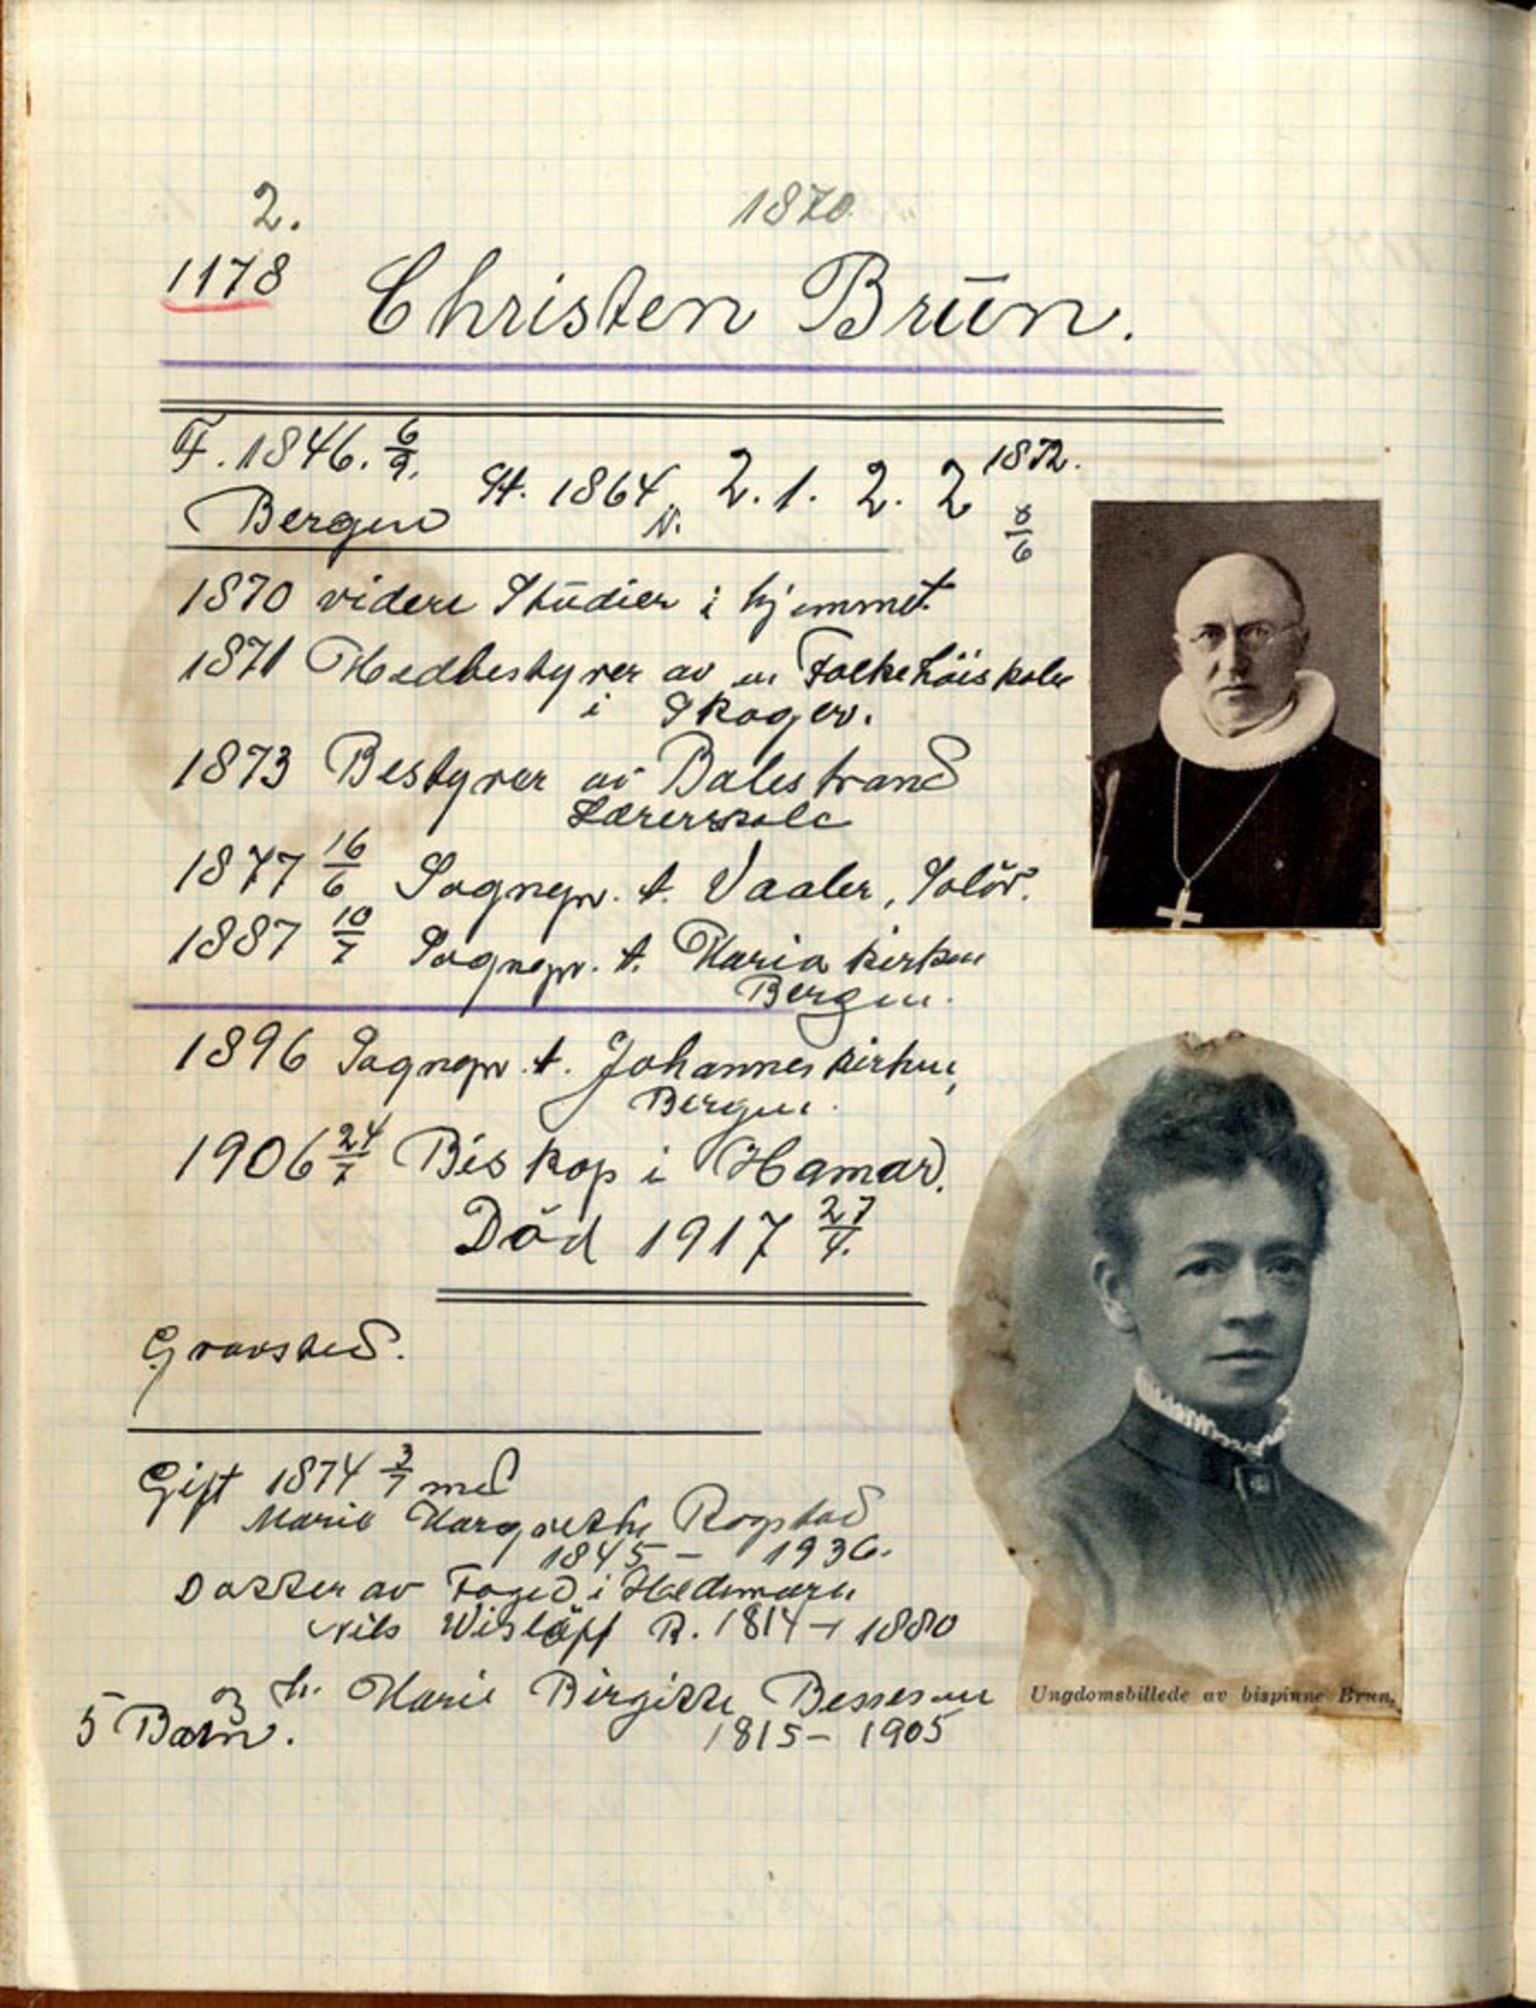 2.
1870
1178 Christen Brūn.
F. 1846. 6/9.
Bergen
St. 1864 N. 2. 1. 2. 2 1872. 8/6
1870 videre Stūdier i hjemmet.
1871 Medbestyrer av en Folkehöiskole
i Skoger.
1873 Bestyrer av Balestrand
Lærerskole
1877 16/6 Sognepr. t. Vaaler, Solör.
1887 10/7 Sognepr. t. Mariakirken
Bergen.
1896 Sognepr. t. Johanneskirken,
Bergen.
1906 24/7 Biskop i Hamar.
Död 1917 27/4.
Gravsted.
Gift 1874 3/7 med
Marie Margrethe Rogstad
1845 - 1936.
Datter av Foged i Hedemark
Nils Wislöff R. 1814 - 1880
og h. Marie Birgitte Bessesen
1815 - 1905
5 Barn.
Ungdomsbillede av bispinne Brun.